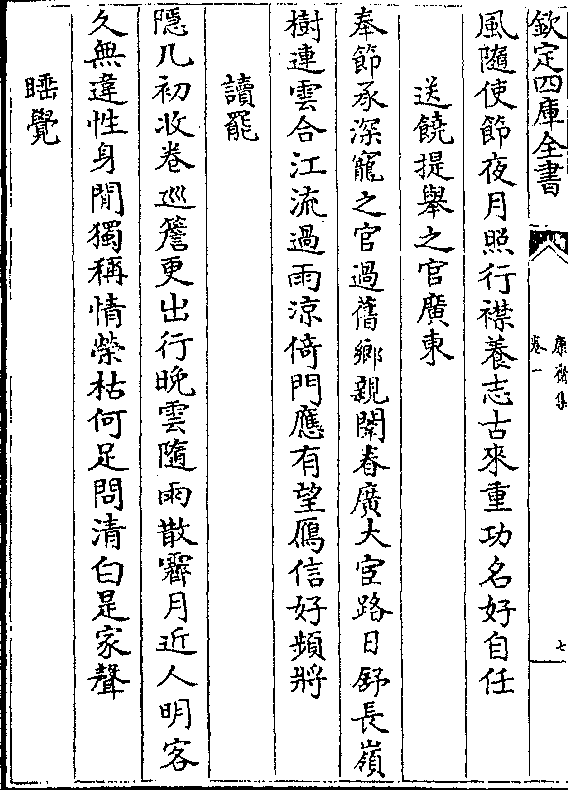 欽定四庫全書
卷一
七
風隨使節夜月照行襟養志古來重功名好自任
送饒提舉之官廣東
奉節承深寵之官過舊鄉親闈春廣大宦路日舒長嶺
樹連雲合江流過雨涼倚門應有望鴈信好頻將
讀罷
隱几初收卷巡簷更出行晚雲隨雨散霽月近人明客
久無違性身閒獨稱情榮枯何足問清白是家聲
睡覺